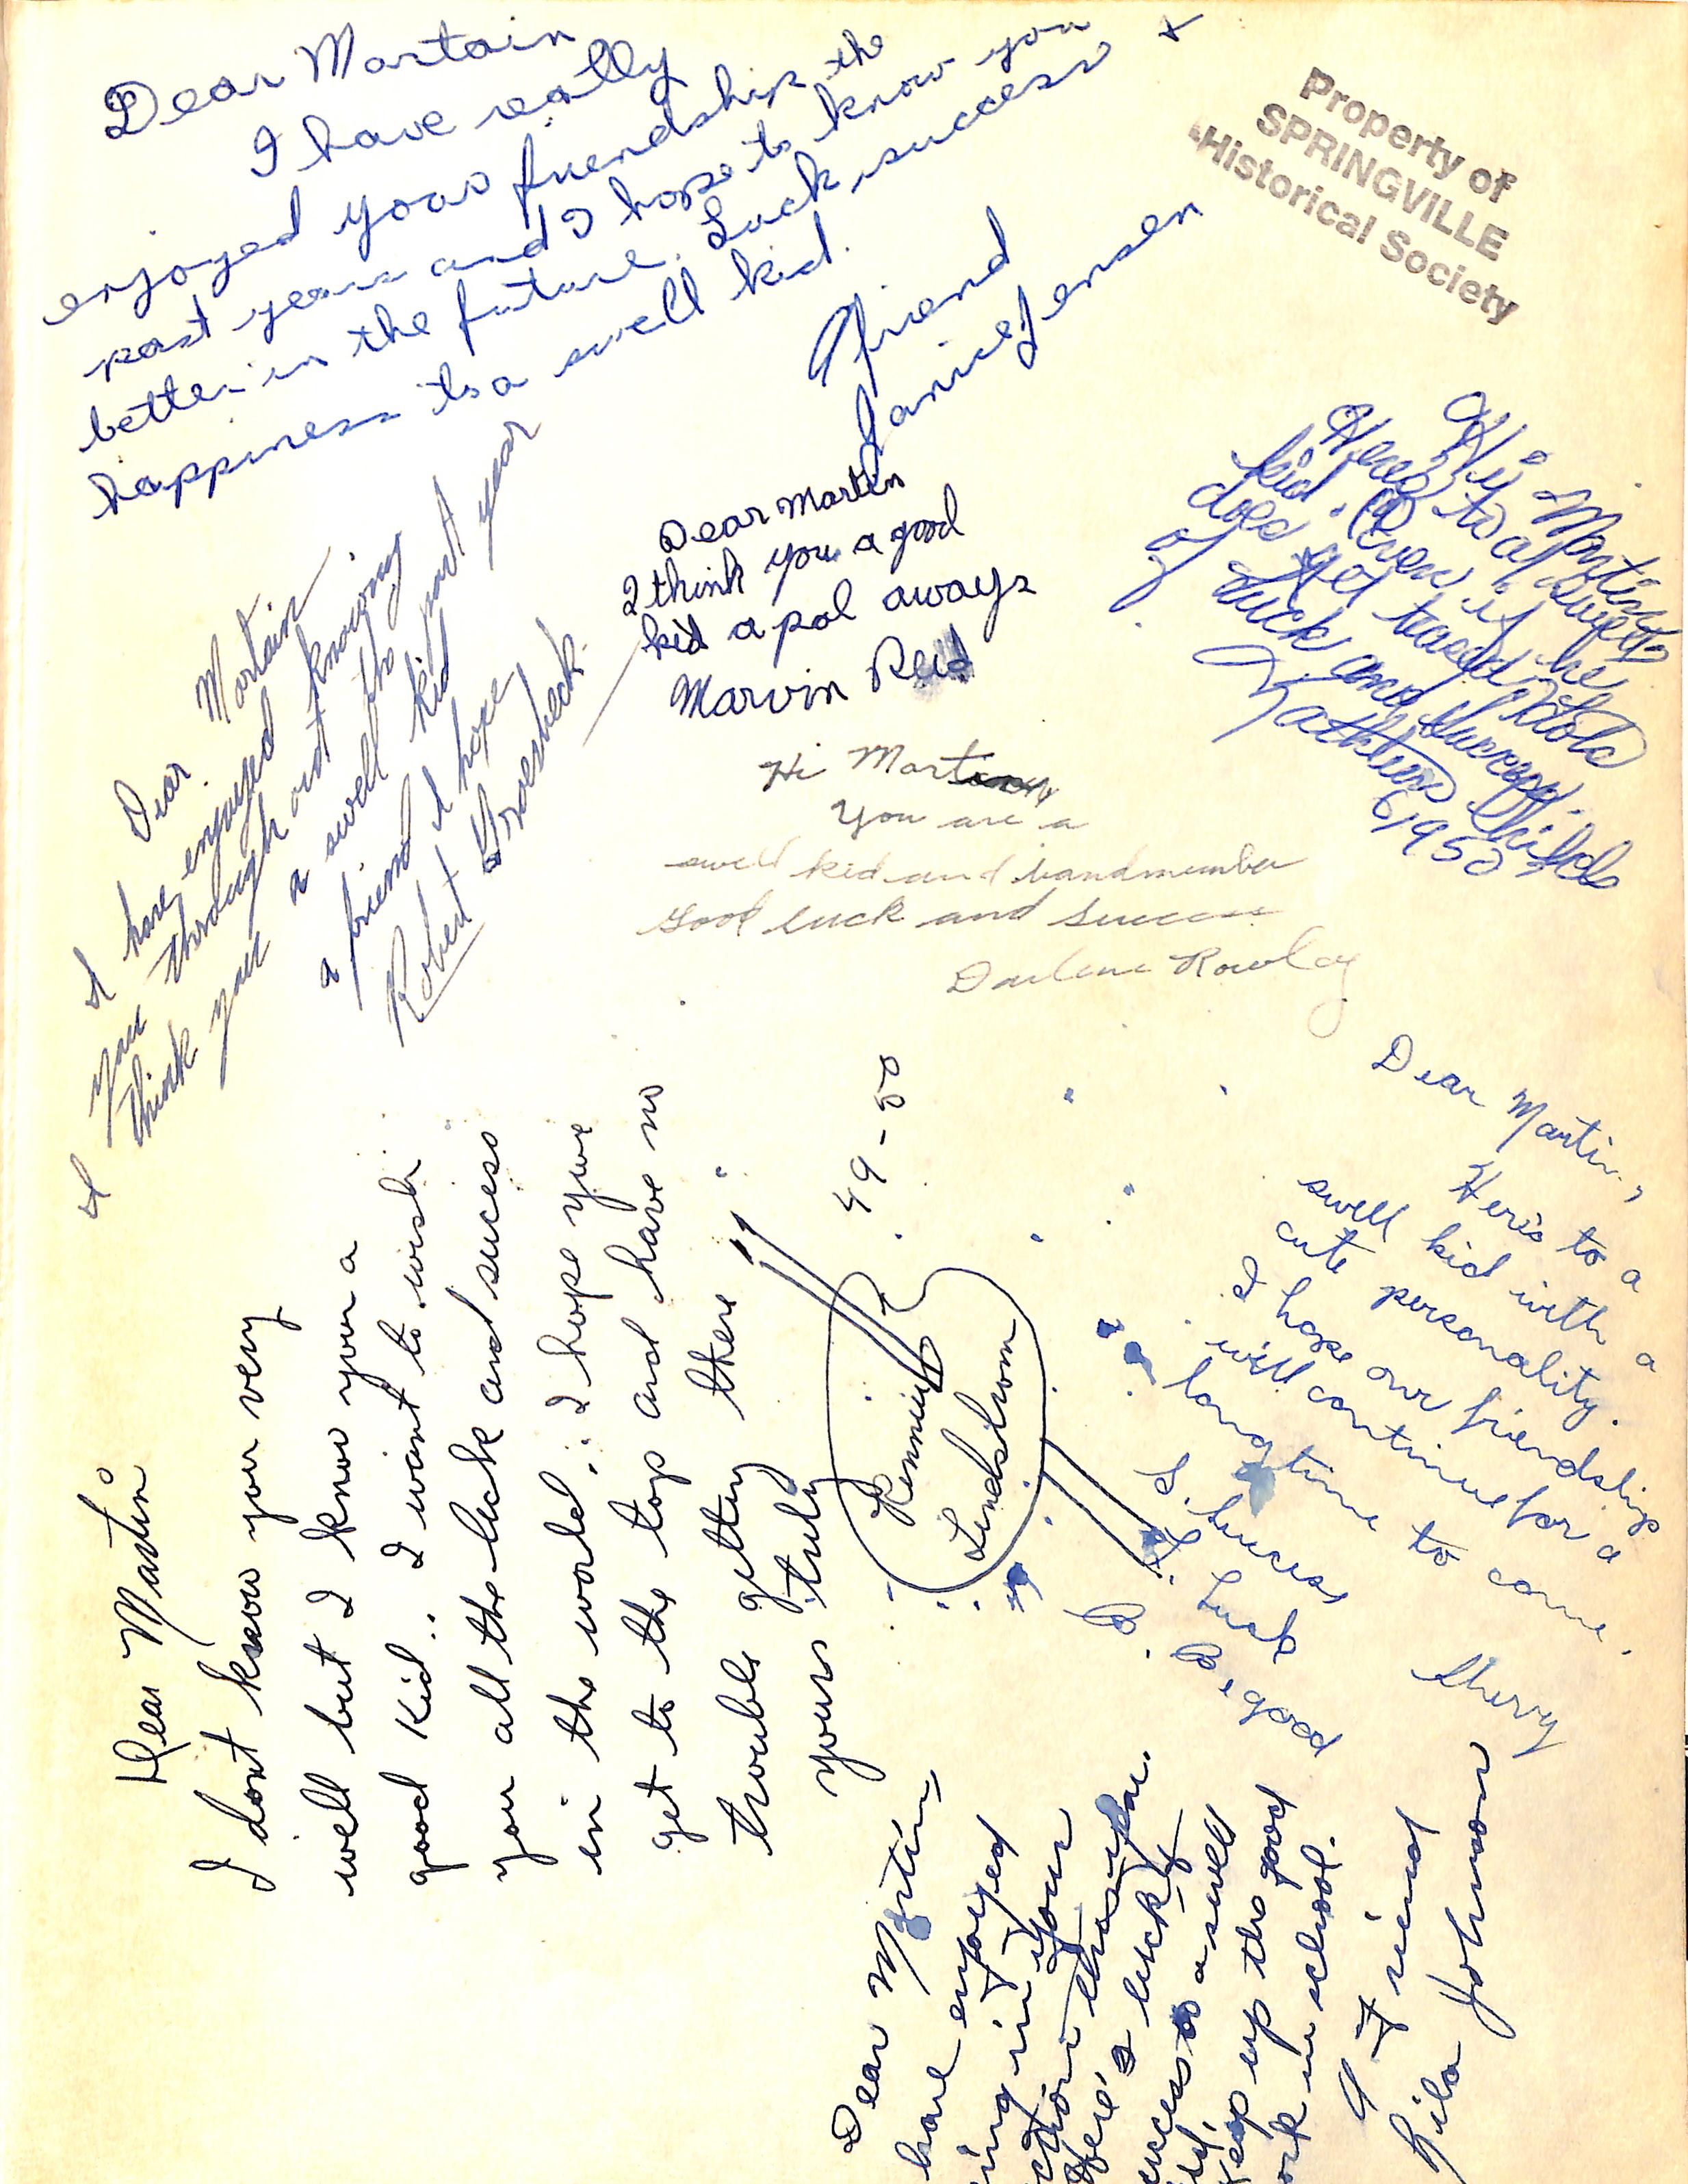 Dear Martain
I have really
enjoyed your friendship the
past years and I hope to know you
better in the future. Luck, success +
happiness to a swell kid.
Friend
Janice Jensen
Property of
SPRINGVILLE
Historical Society
Hi Martin
Here's to a sweet
kid. Even if he
does get teased. Lots
of luck and success.
Kathleen Childs
1950
Dear Martin
I think you a good
kid a pal aways
Marvin Reid
Dear Martain
I have enjoyed knowing
you through out the past year
I think your a swell kid
a friend I hope
Robert Groesbeck
Hi Martin
You are a
swell kid and bandmember
Good luck and success
Darlene Rowley
Dear Martin
I dont know you very
well but I know your a
good kid.. I want to wish
you all the luck and success
in the world.. I hope you
get to the top and have no
trouble getting there
yours truly
Rennie
Lindstrom
49-50
Dear Martin,
Here's to a
swell kid with a
cute personality.
I hope our friendship
will continue for a
long time to come.
S. Success
L. Luck
B. B. good
Sherry
Dear Martin,
have enjoyed
in your
this year.
Here's luck &
success to a swell
Keep up the good
work in school.
A Friend
Lila Johnson